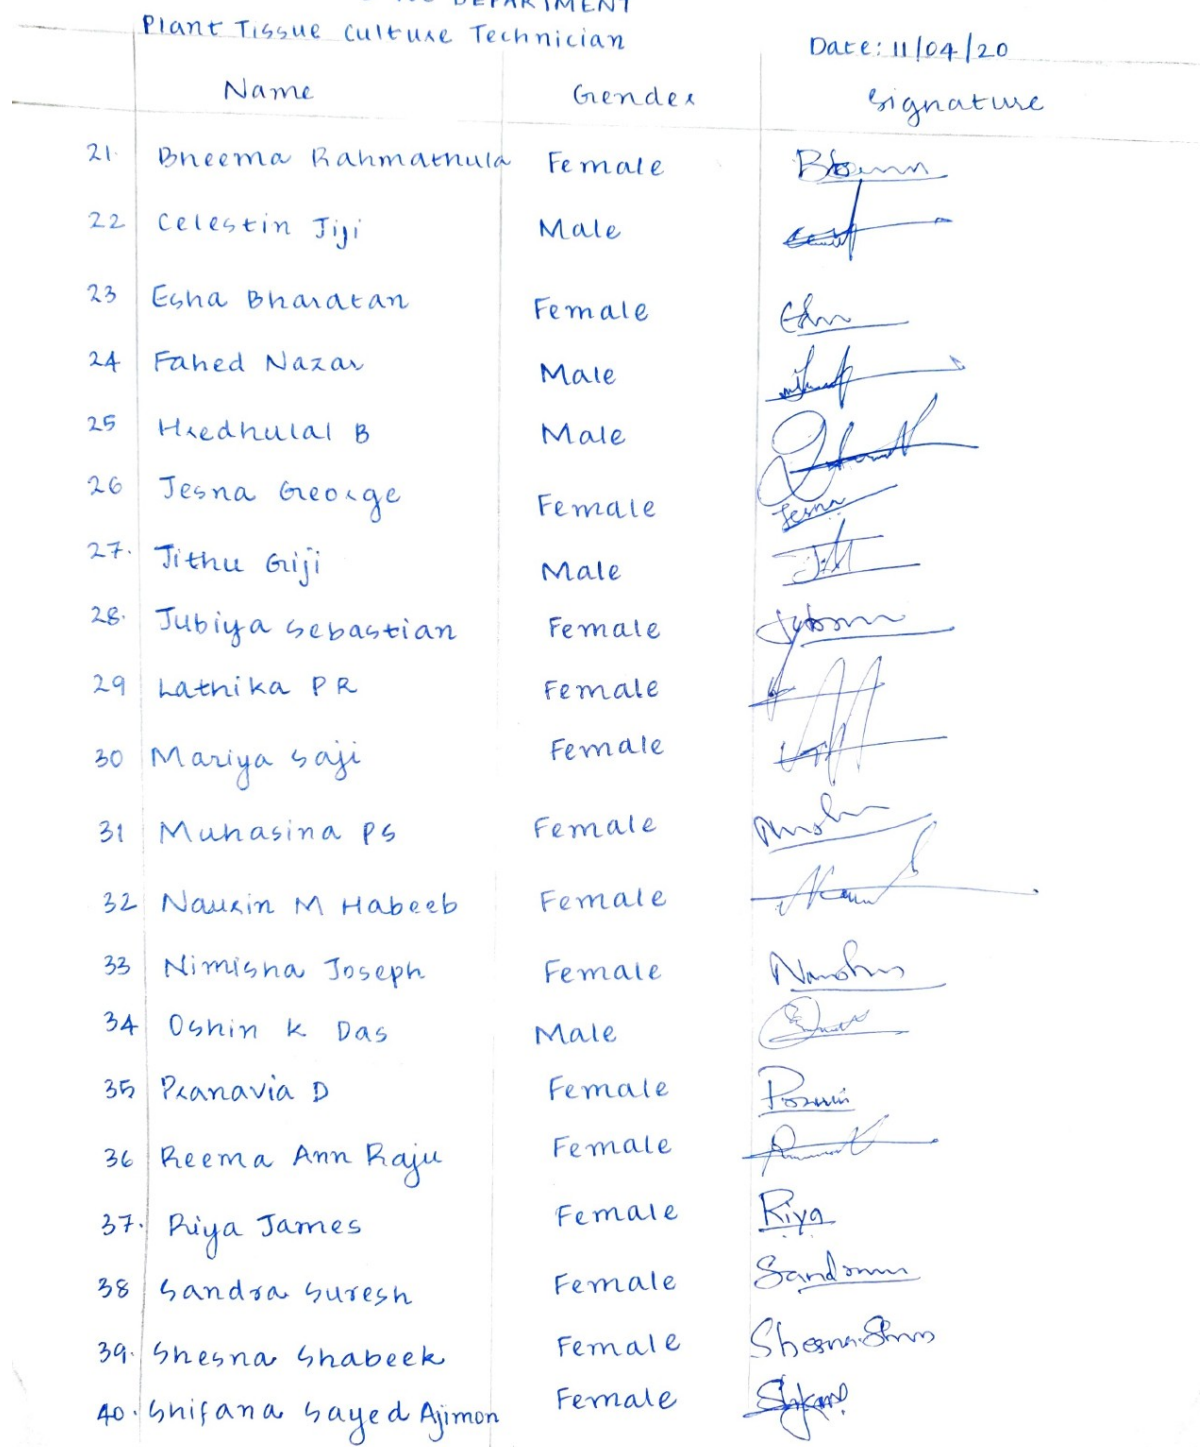 DEPARTMENT
Plant Tissue Culture Technician
Date: 11/04/20
Name Gender Signature
21. Bheema Rahmathula Female
22 Celestin Jiji Male
23 Esha Bharatan Female
24 Fahed Nazar Male
25 Hredhulal B Male
26 Jesna George Female Jesna
27. Jithu Giji Male
28. Jubiya Sebastian Female
29 Lathika P R Female
30 Mariya Saji Female
31 Muhasina PS Female
32 Naurin M Habeeb Female
33 Nimisha Joseph Female
34 Oshin K Das Male
35 Pranavia D Female
36 Reema Ann Raju Female
37. Riya James Female Riya
38 Sandra Suresh Female
39. Shesna Shabeek Female
40. Shifana Sayed Ajimon Female